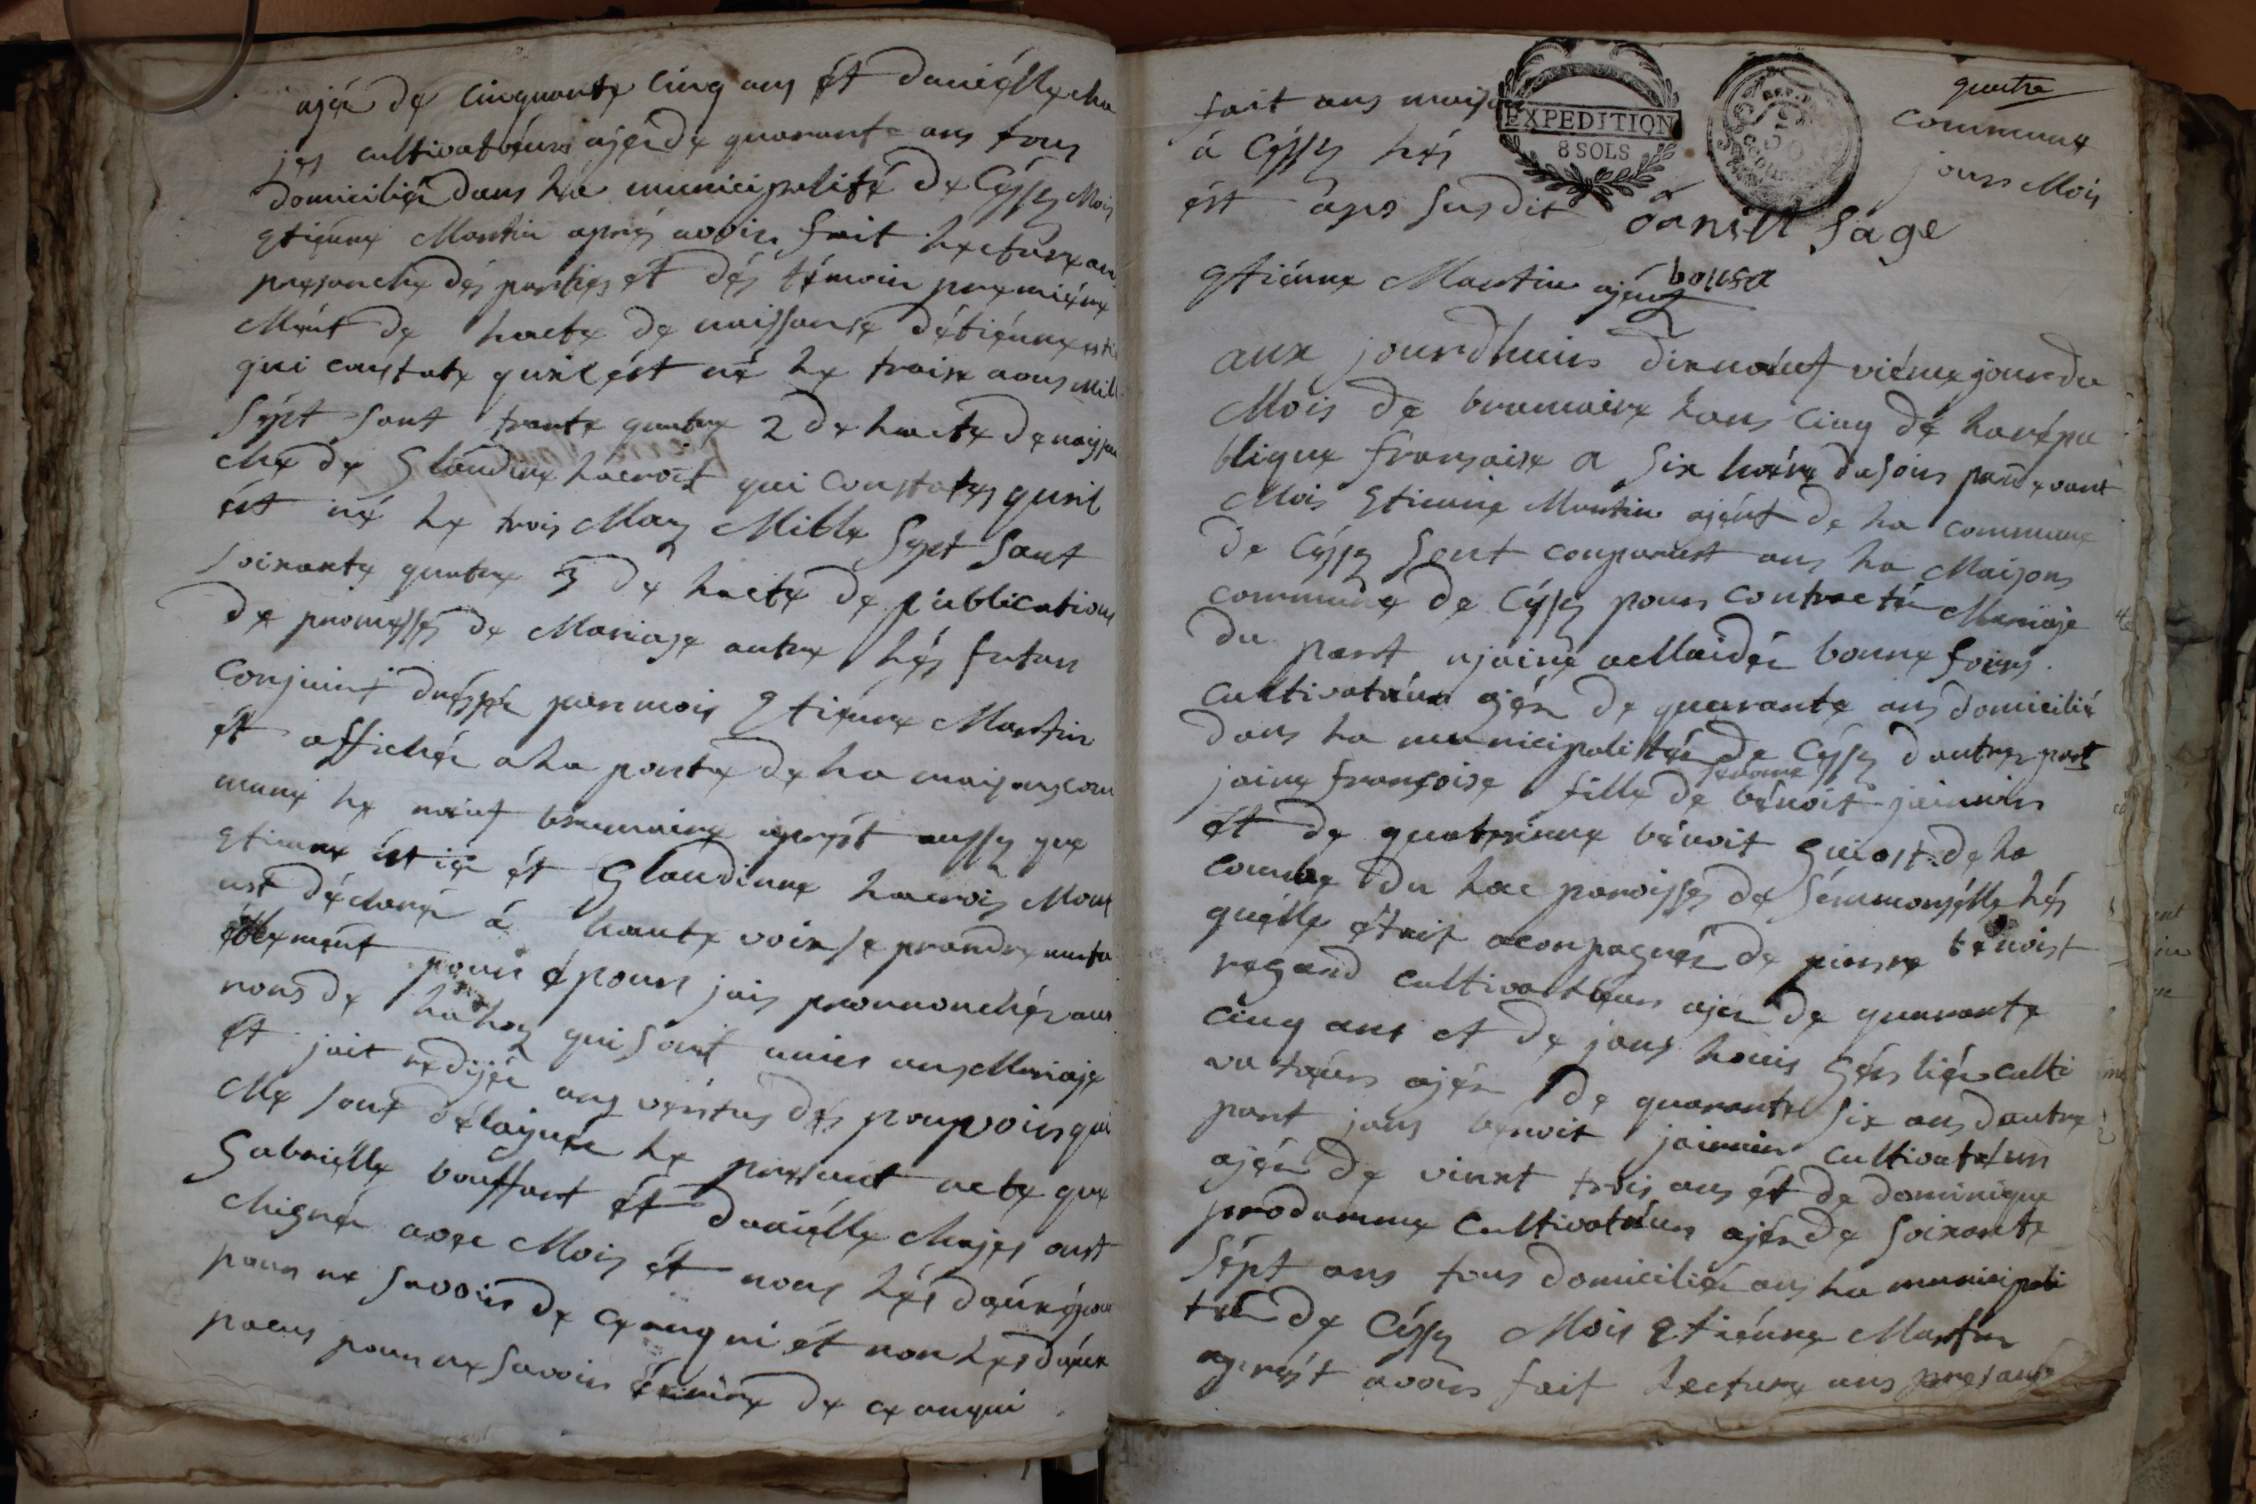 ajér de cinquante cinq ans ét daniélle cha
jes cultivatéurs ajér de quarante ans tous
domiciliér dans la municipalité de Cÿssÿ Mois
Etienne Martin aprés avoir fait lecture an
presanche dés parties ét dés témoin premiére
Mént de lacte de naissanse détiénne
qui constate qu'il ést né le traise aous mill
sépt sant trante quatre 2 de lacte de naissan
che de Glaudine lacroit qui constates quil
ést né le trois Mars Mille sept sant
soixante quatre 3 de lacte de publications
de promésses de Mariage antre lés futur
conjuint dréssér par mois Etiénne Martin
ét affichér a la porte de la maisons com
mune le nœuf brumaire aprést aussy que
Etienne et Glaudinne lacrois Mont
ust déclaré á haute voix se prandre mutu
éllemént pour épours jais prononchér aus
noms de laloy qui sont unies ans Mariaje
ét jait redijér ans véritus dés pouvoirs qui
Me sont délaiguér le presant acte que
Gabriélle bouffart ét daniélle chajes onst
chignér avec Mois ét nous lés déux époux
pour ne savoir de ce anqui ét non les déux
pour ne savoir écrire de ce anqui
quatre
fait ans maison commune
á Cÿssÿ lés jours Mois
ést ans susdit daniel sage
EXPEDITION
8 SOLS
Etiénne Martin ajént bousa
aux jourdhuis dixnœuf viéme jour du
Mois de brumaire lans cinq dé larépu
blique fransaise a six hoére du soir par devant
Mois Etienne Martin ajént de la commune
de Cÿssÿ sont comparust ans la Maisons
commune de Cÿssÿ pour contractér Mariaje
du part bonne foirs
cultivatéur ajér de quarante ans domicilié
dans la municipalitér de Cÿssÿ dautres part
jaine françoise fille de bénoit jaínnin
ét de quatrinne bénoit de la
combe du lac paroisse de lés
quélle était aconpagnér de pierre bénoist
regard cultivatteur ajér de quarante
cinq ans et de jans louis culti
vatéurs ajér de quarante six ans dautre
part jans bénoit jainnin cultivatéur
ajér de vinxt trois ans ét de dominique
prodomme cultivatéur ajér de soixante
sépt ans tous domiciliér ans la municipali
tér de Cÿssÿ Mois Etiénne Martin
aprést avoir fait lecture ans presanse